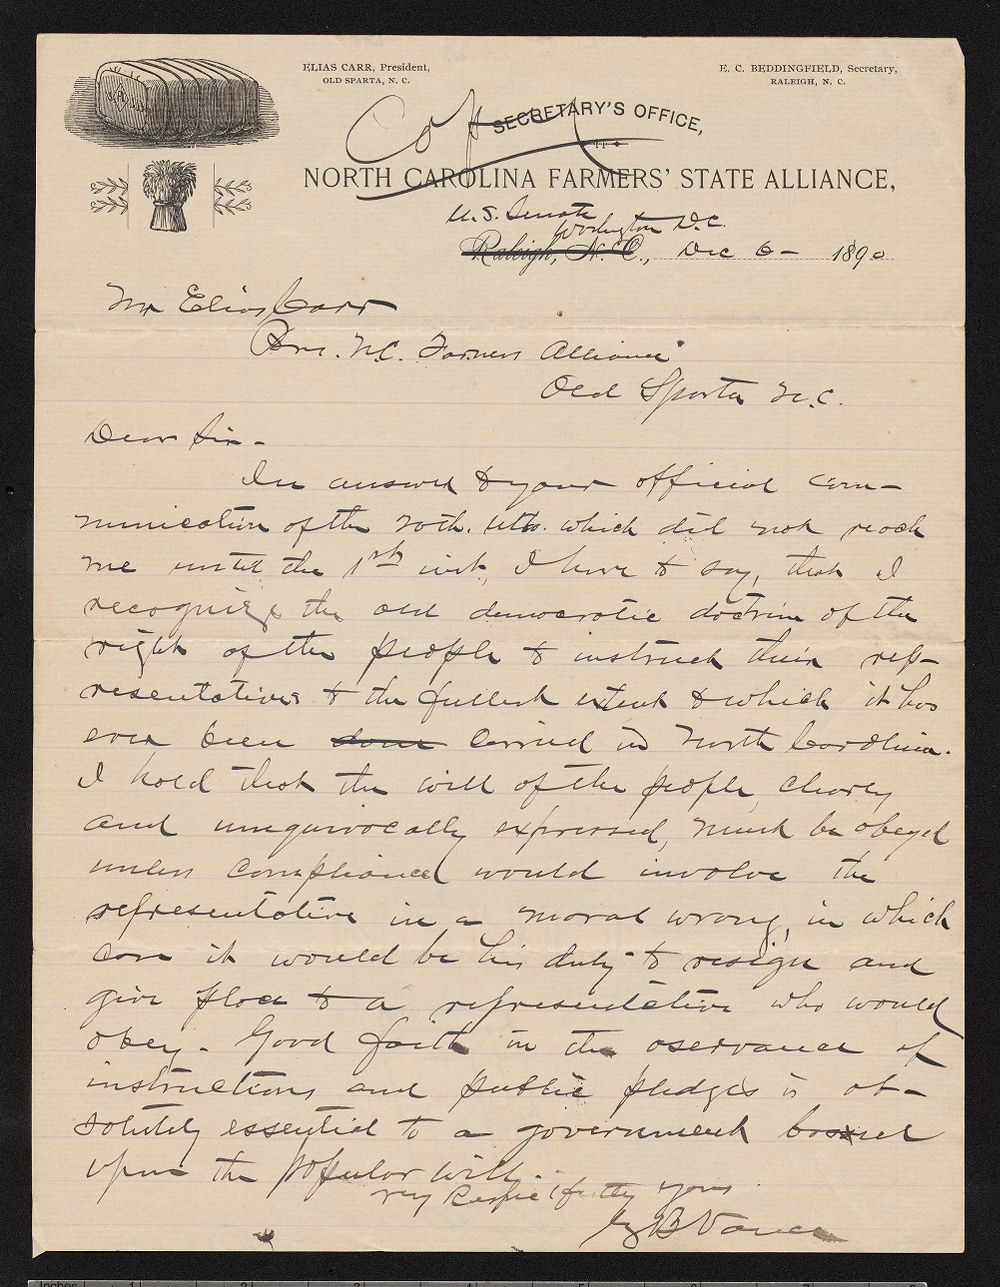 ELIAS CARR, President,
OLD SPARTA, N. C.
E. C. BEDDINGFIELD, Secretary,
RALEIGH, N. C.
Copy
SECRETARY'S OFFICE,
NORTH CAROLINA FARMERS' STATE ALLIANCE,
U.S. Senate
Washington D.C.
Raleigh, N. C., Dec 6 - 1890
Mr Elias Carr
Pres. N.C. Farmers Alliance
Old Sparta N.C.
Dear Sir -
In answer to your official com-
munication of the ulto. which did not reach
me until the 1st inst, I have to say, that I
recognize the old democratic doctrine of the
right of the people to instruct their rep-
resentatives to the fullest extent to which it has
ever been done carried in North Carolina.
I hold that the will of the people, clearly
and unequivocally expressed, must be obeyed
unless compliance would involve the
representative in a moral wrong, in which
case it would be his duty to resign and
give place to a representative who would
obey. Good faith in the oservance of
instructions and public pledges is ab-
solutely essential to a government based
upon the popular will.
Very Respectfully yours
Z B Vance
Inches 1 2 3 4 5 6 7 8